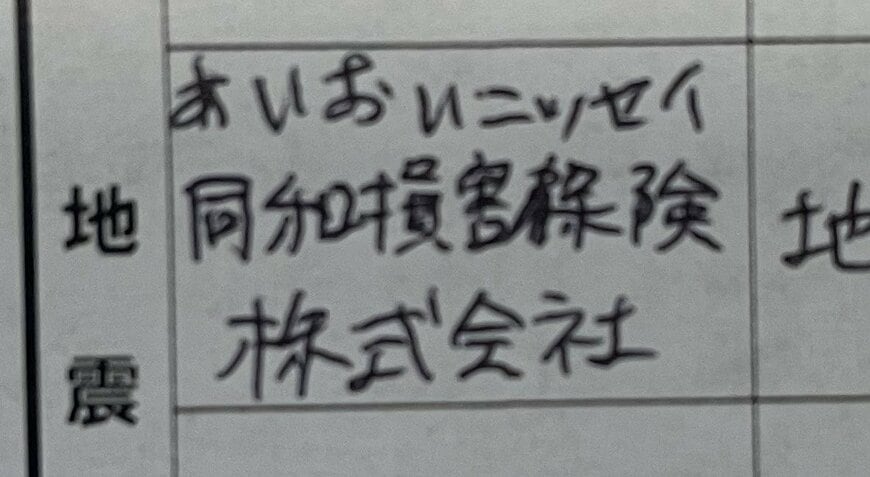 地震
あいおいニッセイ
同和損害保険
株式会社
地